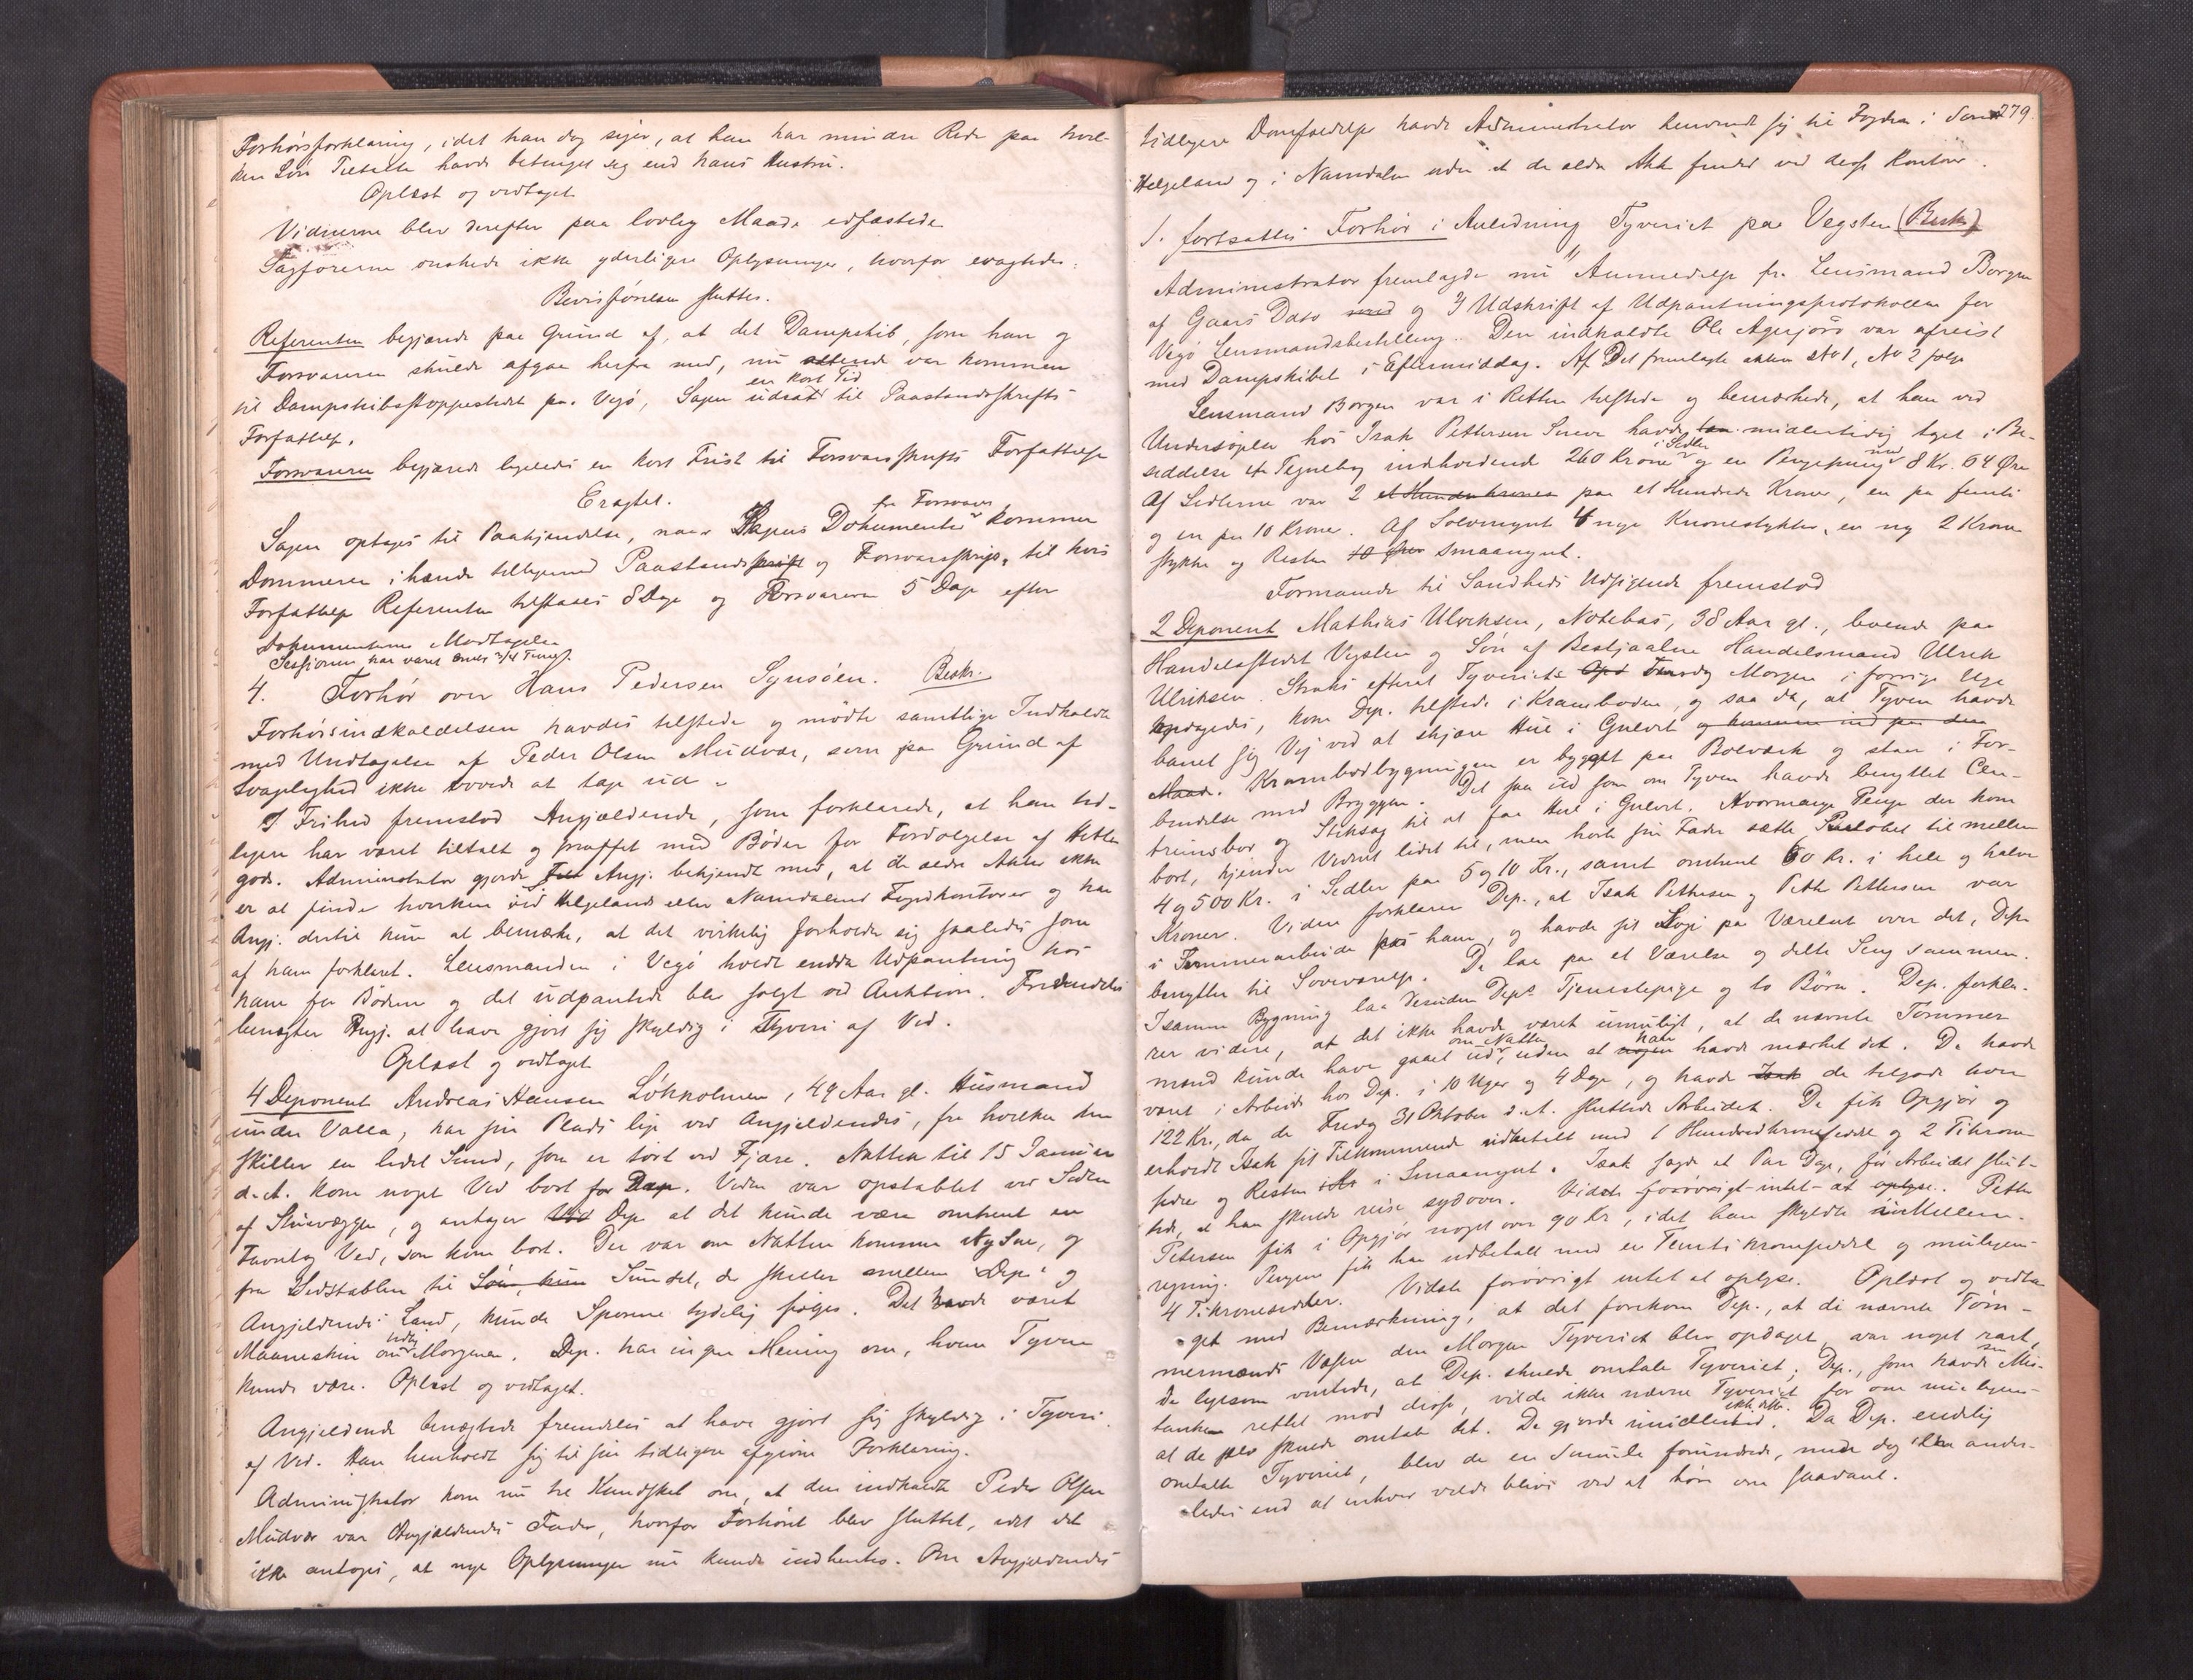 Forhørsforklaring, idet han dog siger, at han har mindre Rede paa hvil-
ken Løn Tiltalte havde betinget sig end hans Hustru.
Oplæst og vedtaget
Vidnerne blev derefter paa lovlig Maade edfæstede
Sagførerne ønskede ikke yderligere Oplysninger, hvorfor eragtedes:
Bevisførelsen sluttes.
Referenten begjærede paa Grund af, at det Dampskib, som han og
Forsvareren skulde afgaa herfra med, nu allerede var kommen
en kort Tid
til Dampskibsstoppestedet paa Vegø, Sagen udsat til Paastandsskrifts
Forfattelse.
Forsvareren begjærede ligeledes en kort Frist til Forsvarsskrifts Forfattelse
Eragtet.
fra Forsvarer
Sagen optages til Paakjendelse, naar Sagens Dokumenter kommer
Dommeren ihænde tilligemed Paastandsskrift og Forsvarsskrift, til hvis
Forfattelse Referenten tilstaaes 8 Dage og Forsvareren 5 Dage efter
Dokumenternes Modtagelse
Sessionen har varet 3/4 Time.
4. Forhør over Hans Pedersen Synsøen. Beskr.
Forhørsindkaldelsen havdes tilstede og mødte samtlige Indkaldte
med Undtagelse af Peder Olsen Mudvær, som paa Grund af
Svagelighed ikke vovede at tage ud.
I Frihed fremstod Angjældende, som forklarede, at han tid-
ligere har været tiltalt og straffet med Bøder for Fordølgelse af Hitte
gods. Administrator gjorde Angj. bekjendt med, at de ældre Akter ikke
er at finde hverken ved Helgelands eller Namdalens Fogdkontorer og har
Angj. dertil kun at bemærke, at det virkelig forholder sig saaledes som
af ham forklaret. Lensmanden i Vegø holdt endda Udpantning hos
ham for Bøderne og det udpantede blev solgt ved Auktion. Fremdeles
benægter Angj. at have gjort sig skyldig i Tyveri af Ved.
Oplæst og vedtaget
4 Deponent Andreas Hansen Løkholmen, 49 Aar gl. Husmand
under Valla, har sin Plads lige ved Angjeldendes, fra hvilken den
skilles en lidet Sund, som er tørt ved Fjære. Natten til 15 Januar
d. A. kom noget Ved bort for Dep. Veden var opstablet ved Siden
af Stuevæggen, og antager Dep. at det kunde være omtrent en
Favnlag Ved, som kom bort. Der var om Natten kommen Nysne, og
fra Vedstablen til Søen, kun Sundet, der skiller mellem Dep.s og
Angjeldendes Land, kunde Sporene tydelig følges. Det havde været
tidlig
Maaneskin om Morgenen. Dep. har ingen Mening om, hvem Tyven
kunde være. Oplæst og vedtaget.
Angjeldende benægtede fremdeles at have gjort sig skyldig i Tyveri
af Ved. Han henholdt sig til sin tidligere afgivne Forklaring.
Administrator kom nu til Kundskab om, at den indkaldte Peder Olsen
Mudvær var Angjældendes Fader, hvorfor Forhøret blev sluttet, idet det
ikke antoges, at nye Oplysninger nu kunde indhentes. Om Angjeldendes
279.
tidligere Domfældelse havde Administrator henvendt sig til Fogden i Søndre
Helgeland og i Namdalen uden at de ældre Akter findes ved disse Kontorer.
5. fortsattes Forhør i Anledning Tyveriet paa Vegsten (Beskr.)
Administrator fremlagde nu 1) Anmeldelse fra Lensmand Borgen
af Gaars Dato med og 2) Udskrift af Udpantningsprotokollen for
Vegø Lensmandsbestilling. Den indkaldte Ole Agersjord var afreist
med Dampskibet i Eftermiddag. Af Det fremlagte akten No 1, No 2 følge
Lensmand Borgen var i Retten tilstede og bemærkede, at han ved
Undersøgelse hos Isak Pettersen havde midlertidig taget i Be-
i Sedler
med
siddelse en Tegnebog indeholdende 260 Kroner og en Pengepung 8 Kr. 64 Øre
Af Sedlerne var 2 et Hundre kroner paa et Hundrede Kroner, en paa femti
og en paa 10 Kroner. Af Sølvmynt 4 nye Kronestykker, en ny 2 Krone
stykke og Resten 10 Ører Smaamynt.
Formanede til Sandheds Udsigende fremstod
2 Deponent Mathias Ulriksen, Notebas, 38 Aar gl., boende paa
Handelsstedet Vegsten og Søn af Bestjaalne Handelsmand Ulrik
Ulriksen. Straks efterat Tyveriet Morgen i forrige Uge
opdagedes, kom Dep. tilstede i Kramboden, og saa da, at Tyven havde
banet sig Vej ved at skjære Hul i Gulvet og kommen ind paa den
Maade. Krambodbygningen er bygget paa Bolværk og staar i For-
bindelse med Bryggen. Det saa ud som om Tyven havde benyttet Cen-
trumsbor og Stiksag til at faa Hul i Gulvet. Hvormange Penge der kom
bort, kjender Vidnet lidet til, men hørte sin Fader sætte Beløbet til mellem
4 og 500 Kr. i Sedler paa 5 og 10 Kr., samt omtrent 60 Kr. i hele og halve
Kroner. Viden forklarer Dep., at Isak Pettersen og Petter Pettersen var
i Tømmerarbeide hos ham, og havde sit Logi paa Værelset over det, Dep.
benytter til Soveværelse. De laa paa et Værelse og delte Seng sammen.
I samme Bygning laa desuden Dep.s Tjenestepige og to Børn. Dep. forkla-
rer videre, at det ikke havde været umuligt, at de nævnte Tømmer
om Natten
han
mænd kunde have gaaet ud, uden at nogen havde mærket det. De havde
været i Arbeide hos Dep. i 10 Uger og 4 Dage, og havde Isak de tilgode hver
122 Kr., da de Fredag 31 Oktober d. A. sluttede Arbeidet. De fik Opgjør og
erholdt Isak sit Tilkommende udbetalt med 1 Hundredkroneseddel og 2 Tikrone
sedler og Resten i Smaamynt. Isak sagde et Par Dage, før Arbeidet slut-
tede, at han skulde reise sydover. Vidste forøvrigt intet at oplyse. Petter
Petersen fik i Opgjør noget over 90 Kr., idet han skyldte
regning. Pengene fik han udbetalt med en Femtikroneseddel og muligens
4 Tikronesedler. Vidste forøvrigt intet at oplyse. Oplæst og vedta-
get med Bemærkning, at det forekom Dep., at de nævnte Tøm-
mermænds Væsen den Morgen Tyveriet blev opdaget, var noget rart,
sin
da ligesom ventede, at Dep. skulde omtale Tyveriet; Dep., som havde Mis-
tanken rettet mod disse, vilde ikke nævne Tyveriet for om muligens
ikke dette.
at de selv skulde omtale det. De gjorde imidlertid. Da Dep. endelig
omtalte Tyveriet, blev de en Smule forundrede, men dog ikke ander-
ledes end at enhver vilde blive ved at høre om saadant.